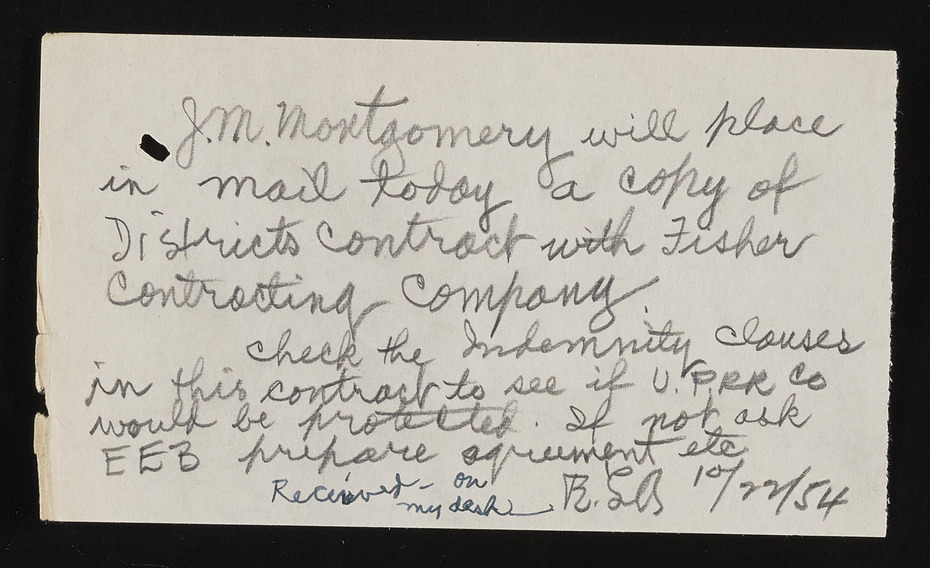 J.M. Montgomery will place
in mail today a copy of
Districts Contract with Fisher
Contracting Company.
Check the Indemnity Clauses
in this contract to see if U.PRR Co
would be protected. If not ask
EEB prepare agreement etc
Received - on
my desk
10/22/54